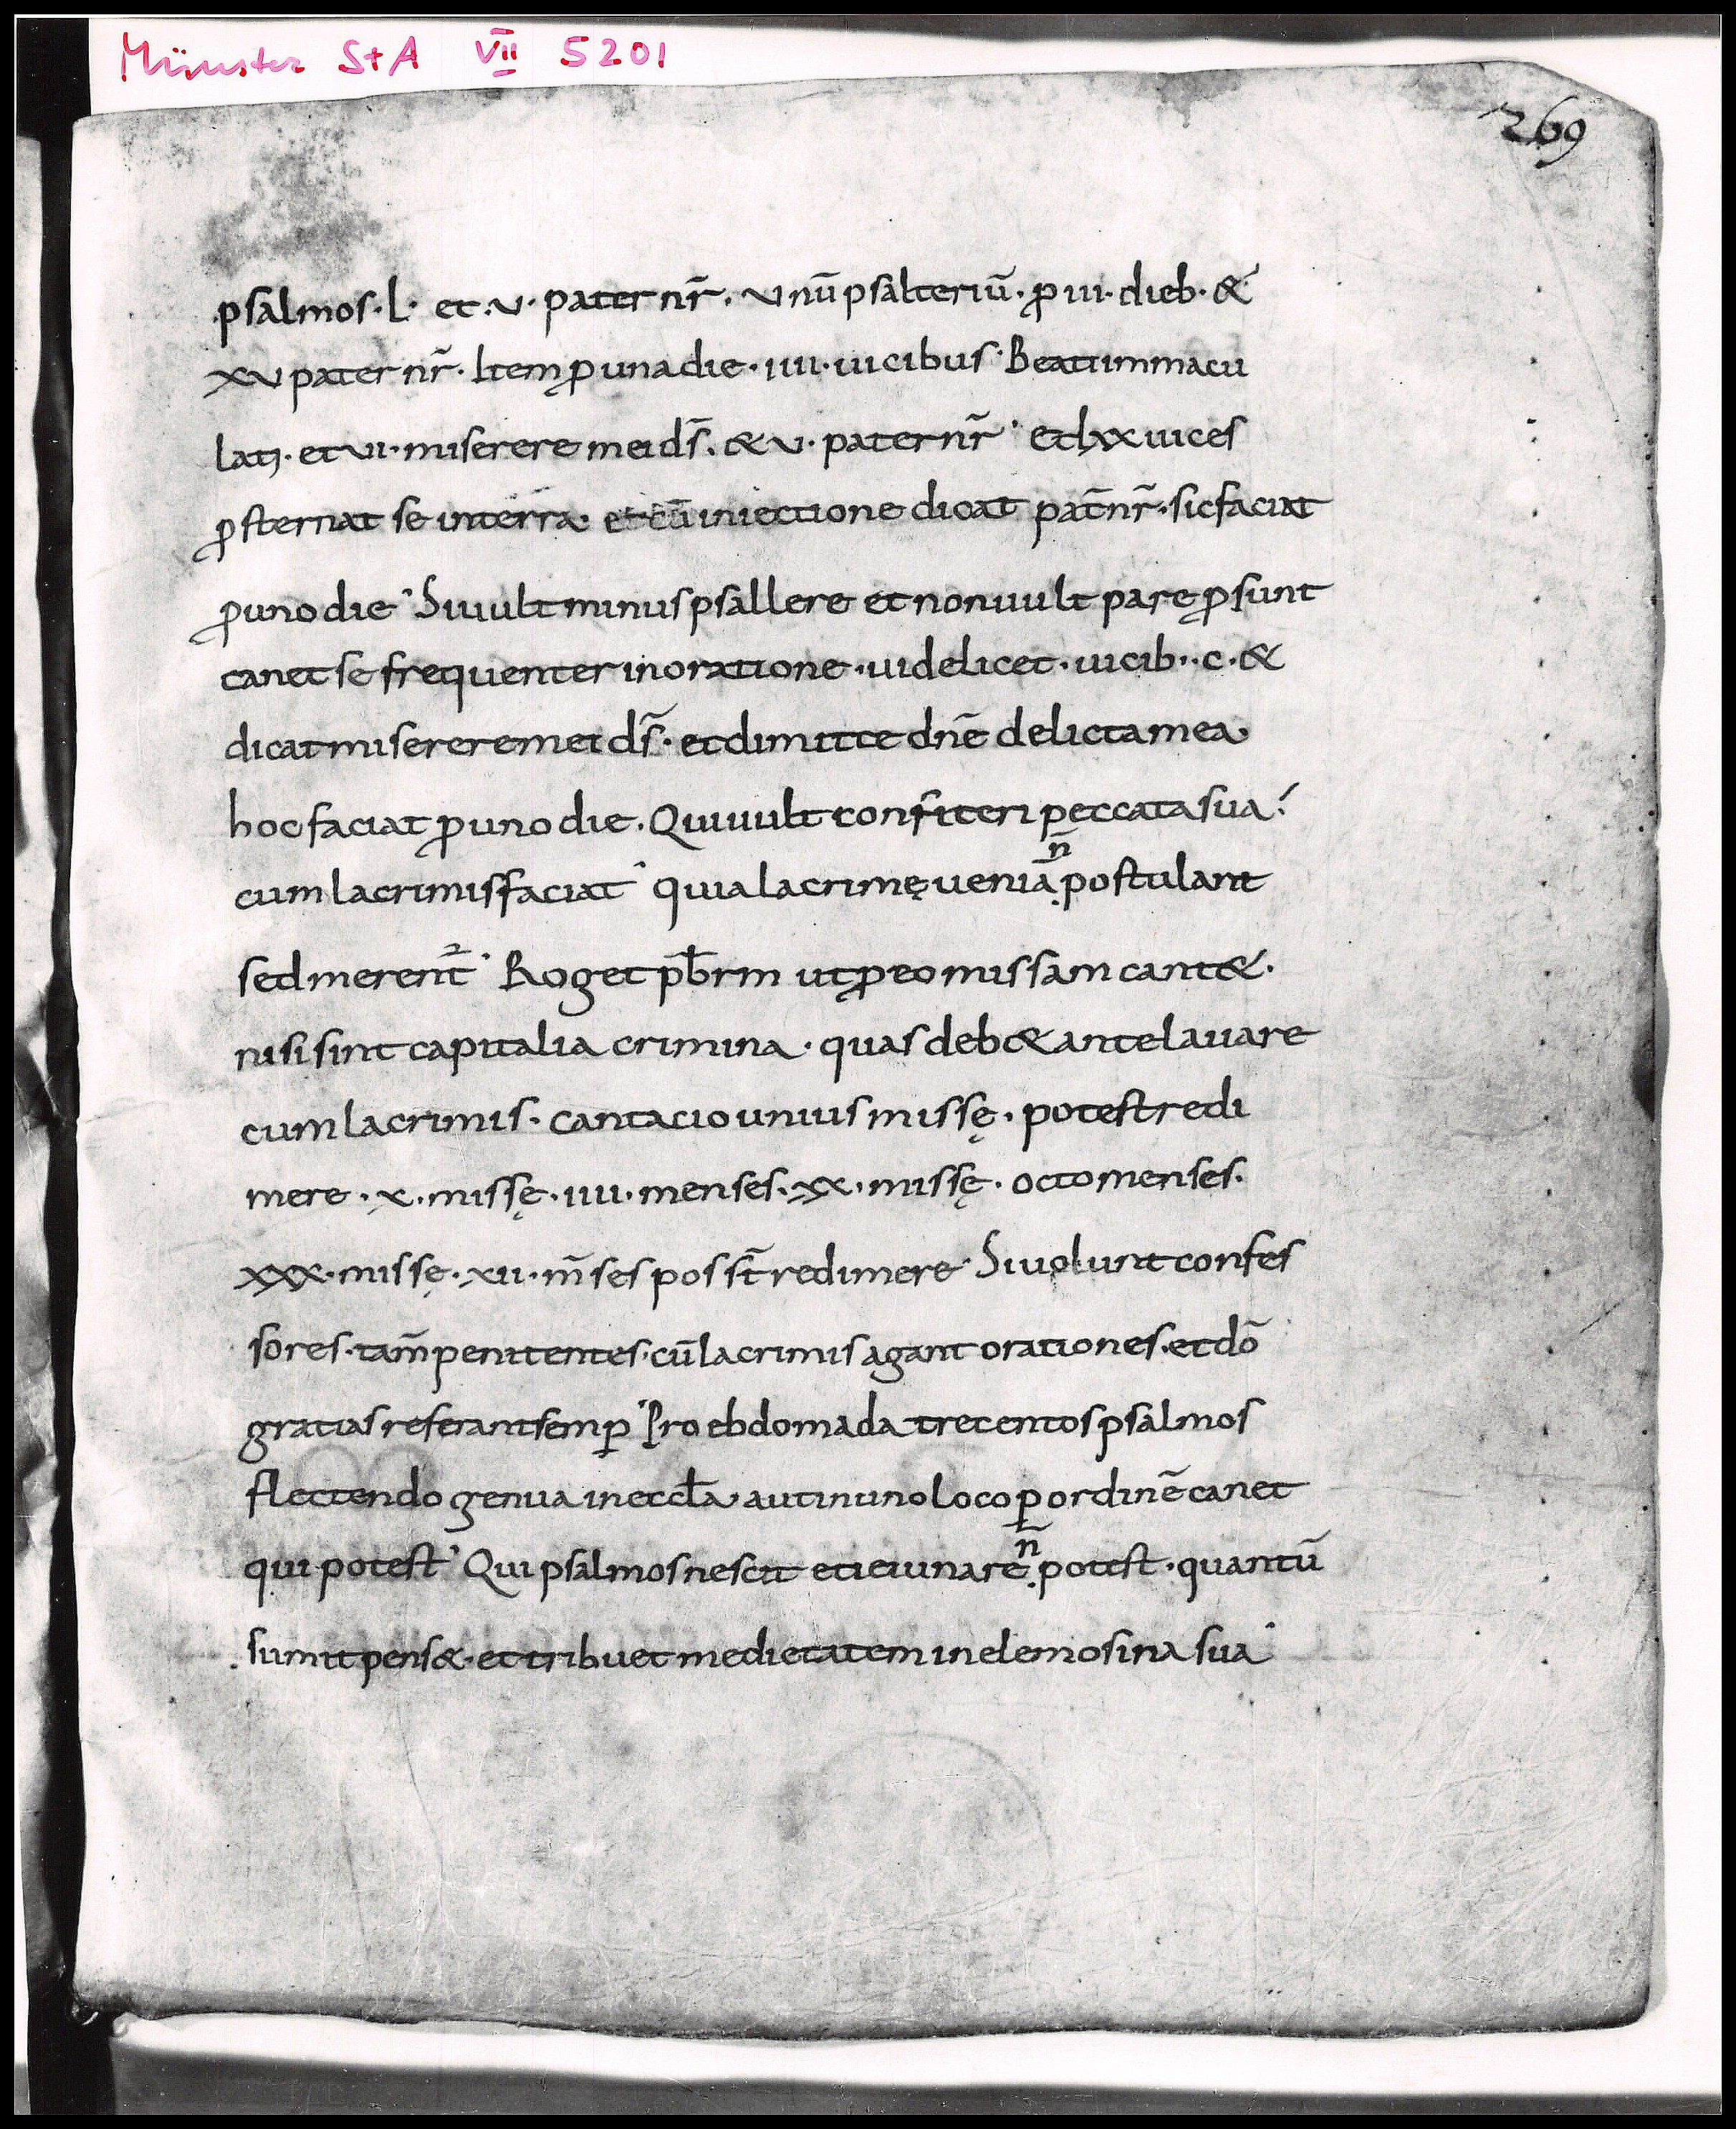 Münster StA VII 5201
269
psalmos·l· et·v·pater nr̃. vnū psalteriū· ꝓ iii· dieb· &
xv pater nr̃· Item ꝓ una die· iiii· uicibus· Beati immacu
lati· et vi· miserere mei ds̃. & v· pater nr̃· et lxx uices
ꝓsternat se in terra· et cū iniectione dicat pat̃ nr̃· sic faciat
ꝓ uno die· Si uult minus psallere et non uult pareꝓ sunt
canet se frequenter in oratione· uidelicet· uicib·· c· &
dicat miserere mei ds̃· et dimitte dñe delicta mea·
hoc faciat ꝓ uno die. Qui uult confiteri peccata sua·
cum lacrimis faciat· quia lacrimę ueniā n̄ postulant
sed merent̃· Roget pb̄rm ut ꝓ eo missam cant&·
nisi sint capitalia crimina· quas deb& ante lauare
cum lacrimis· cantacio unius missę· potest redi
mere· x· missę· iiii· menses· xx· missę· octo menses·
xxx· missę· xii· m̄ses poss̄t redimere· Si uolunt confes
sores· tam̄ penitentes· cū lacrimis agant orationes· et dō
gratias referant semꝑ· Pro ebdomada trecentos psalmos
flectendo genua in eccl̄a aut in uno loco ꝑ ordinē canet
qui potest· Qui psalmos nescit et ieiunare n̄ potest· quantū
sumit pens&· et tribuet medietatem in elemosina sua·